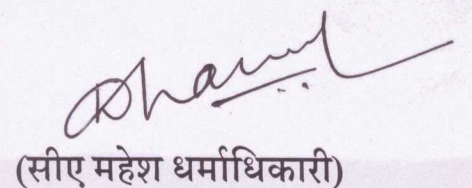 (सीए महेश धर्माधिकारी)